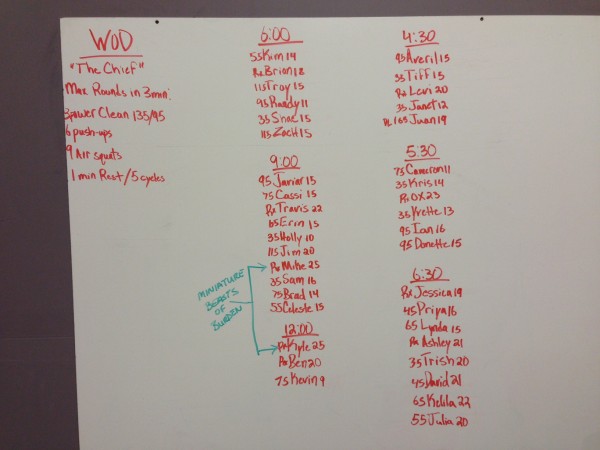 WOD
"The Chief"
Max Rounds in 3min:
3power Clean 135/95
6 push-ups
9 Air squats
1 min Rest/5 cycles
6:00
55Kim 14
Rx Brian 18
115 Troy 15
95 Randy 11
35 Shae 15
115 Zach 15
9:00
95 Javier 15
75 Cassi 15
Rx Travis 22
65 Erin 15
35 Holly 10
115 Jim 20
Rx Mike 25
35 Sam 16
75 Brad 14
55 Celeste 15
MINIATURE
BEASTS
OF
BURDEN
12:00
Rx Kyle 25
Rx Ben 20
75 Kevin 9
4:30
95 Averil 15
35 Tiff 15
Rx Levi 20
35 Janet 12
RL 165 Juan 19
5:30
75 Cameron 11
35 Kris 14
Rx OX 23
35 Yvette 13
95 Ian 16
95 Donette 15
6:30
Rx Jessica 19
45 Priya 16
65 Lynda 15
Rx Ashley 21
35 Trish 20
45 David 21
65 Kelila 22
55 Julia 20